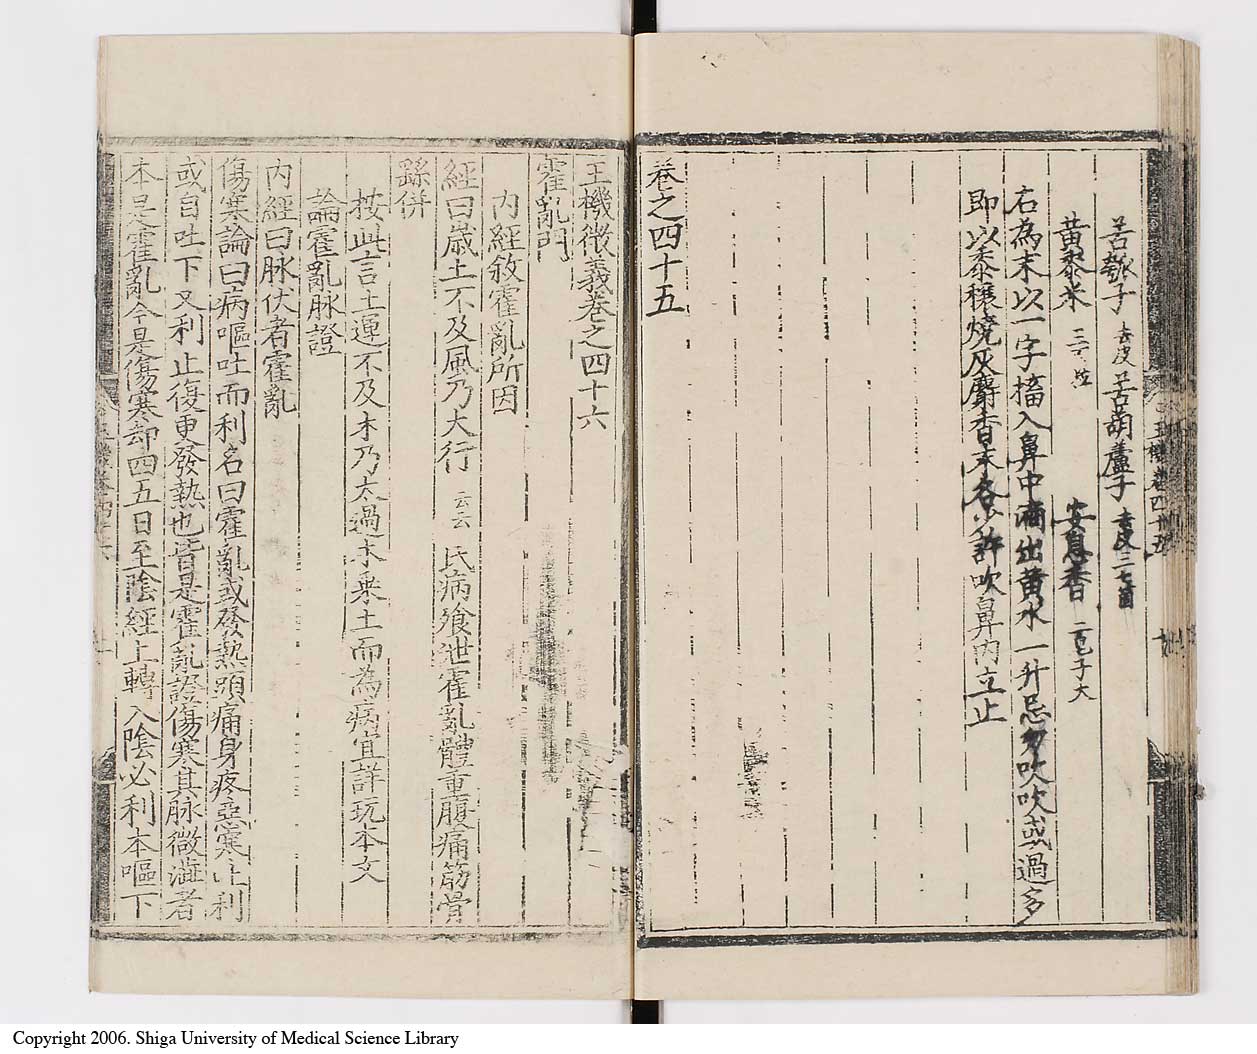 苦瓠子 去皮 苦葫蘆子 去皮二七箇
黃黍米 三百粒 安息香 二皂子大
右為末以一字搐入鼻中滴出黃水一升忌多吹吹或過多
即以黍穰燒灰麝香末各少許吹鼻內立止
卷之四十五
玉機微義卷之四十六
霍亂門
內經敘霍亂所因
經曰歲土不及風乃大行 云云 民病飧泄霍亂體重腹痛筋骨
繇併
按此言土運不及木乃太過木乘土而為病宜詳玩本文
論霍亂脉證
內經曰脉伏者霍亂
傷寒論曰病嘔吐而利名曰霍亂或發熱頭痛身疼惡寒吐利
或自吐下又利止復更發熱也皆是霍亂證傷寒其脉微濇者
本是霍亂今是傷寒却四五日至陰經上轉入陰必利本嘔下
Copyright 2006. Shiga University of Medical Science Library